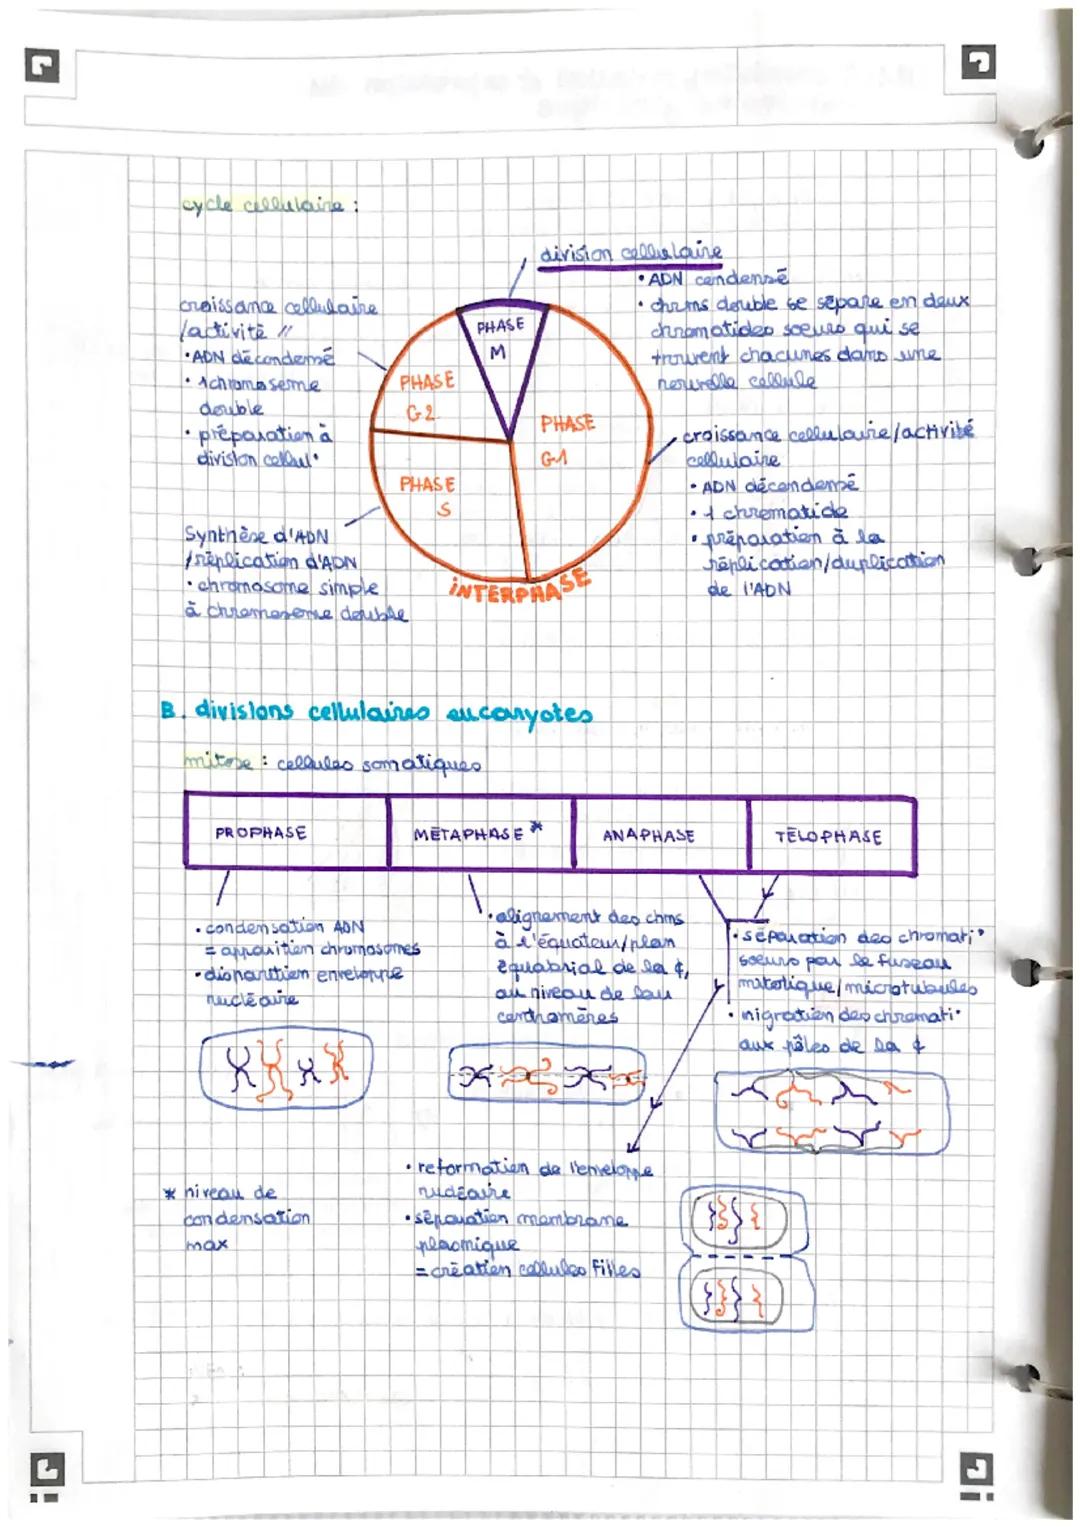 cycle cellulaire :
division cellulaire
• ADN condensé
• chrms double se sépare en deux
chromatides soeurs qui se
trouvent chacunes dans une
nouvelle cellule
croissance cellulaire
/activité //
• ADN décondensé
• 1 chromosome
double
• préparation à
division cellul•
PHASE
M
PHASE
G2
PHASE
G1
PHASE
S
INTERPHASE
croissance cellulaire/activité
cellulaire
• ADN décondensé
• 1 chromatide
• préparation à la
réplication/duplication
de l'ADN
Synthèse d'ADN
/réplication d'ADN
• chromosome simple
à chromosome double
B. divisions cellulaires eucaryotes
mitose : cellules somatiques
PROPHASE
MÉTAPHASE *
ANAPHASE
TÉLOPHASE
• condensation ADN
= apparition chromosomes
• disparition enveloppe
nucléaire
• alignement des chms
à l'équateur/plan
équatorial de la ¢,
au niveau de leur
centromères
• séparation des chromati•
soeurs par le fuseau
mitotique/microtubules
• migration des chromati•
aux pôles de la ¢
* niveau de
condensation
max
• reformation de l'enveloppe
nucléaire
• séparation membrane
plasmique
= création cellules filles